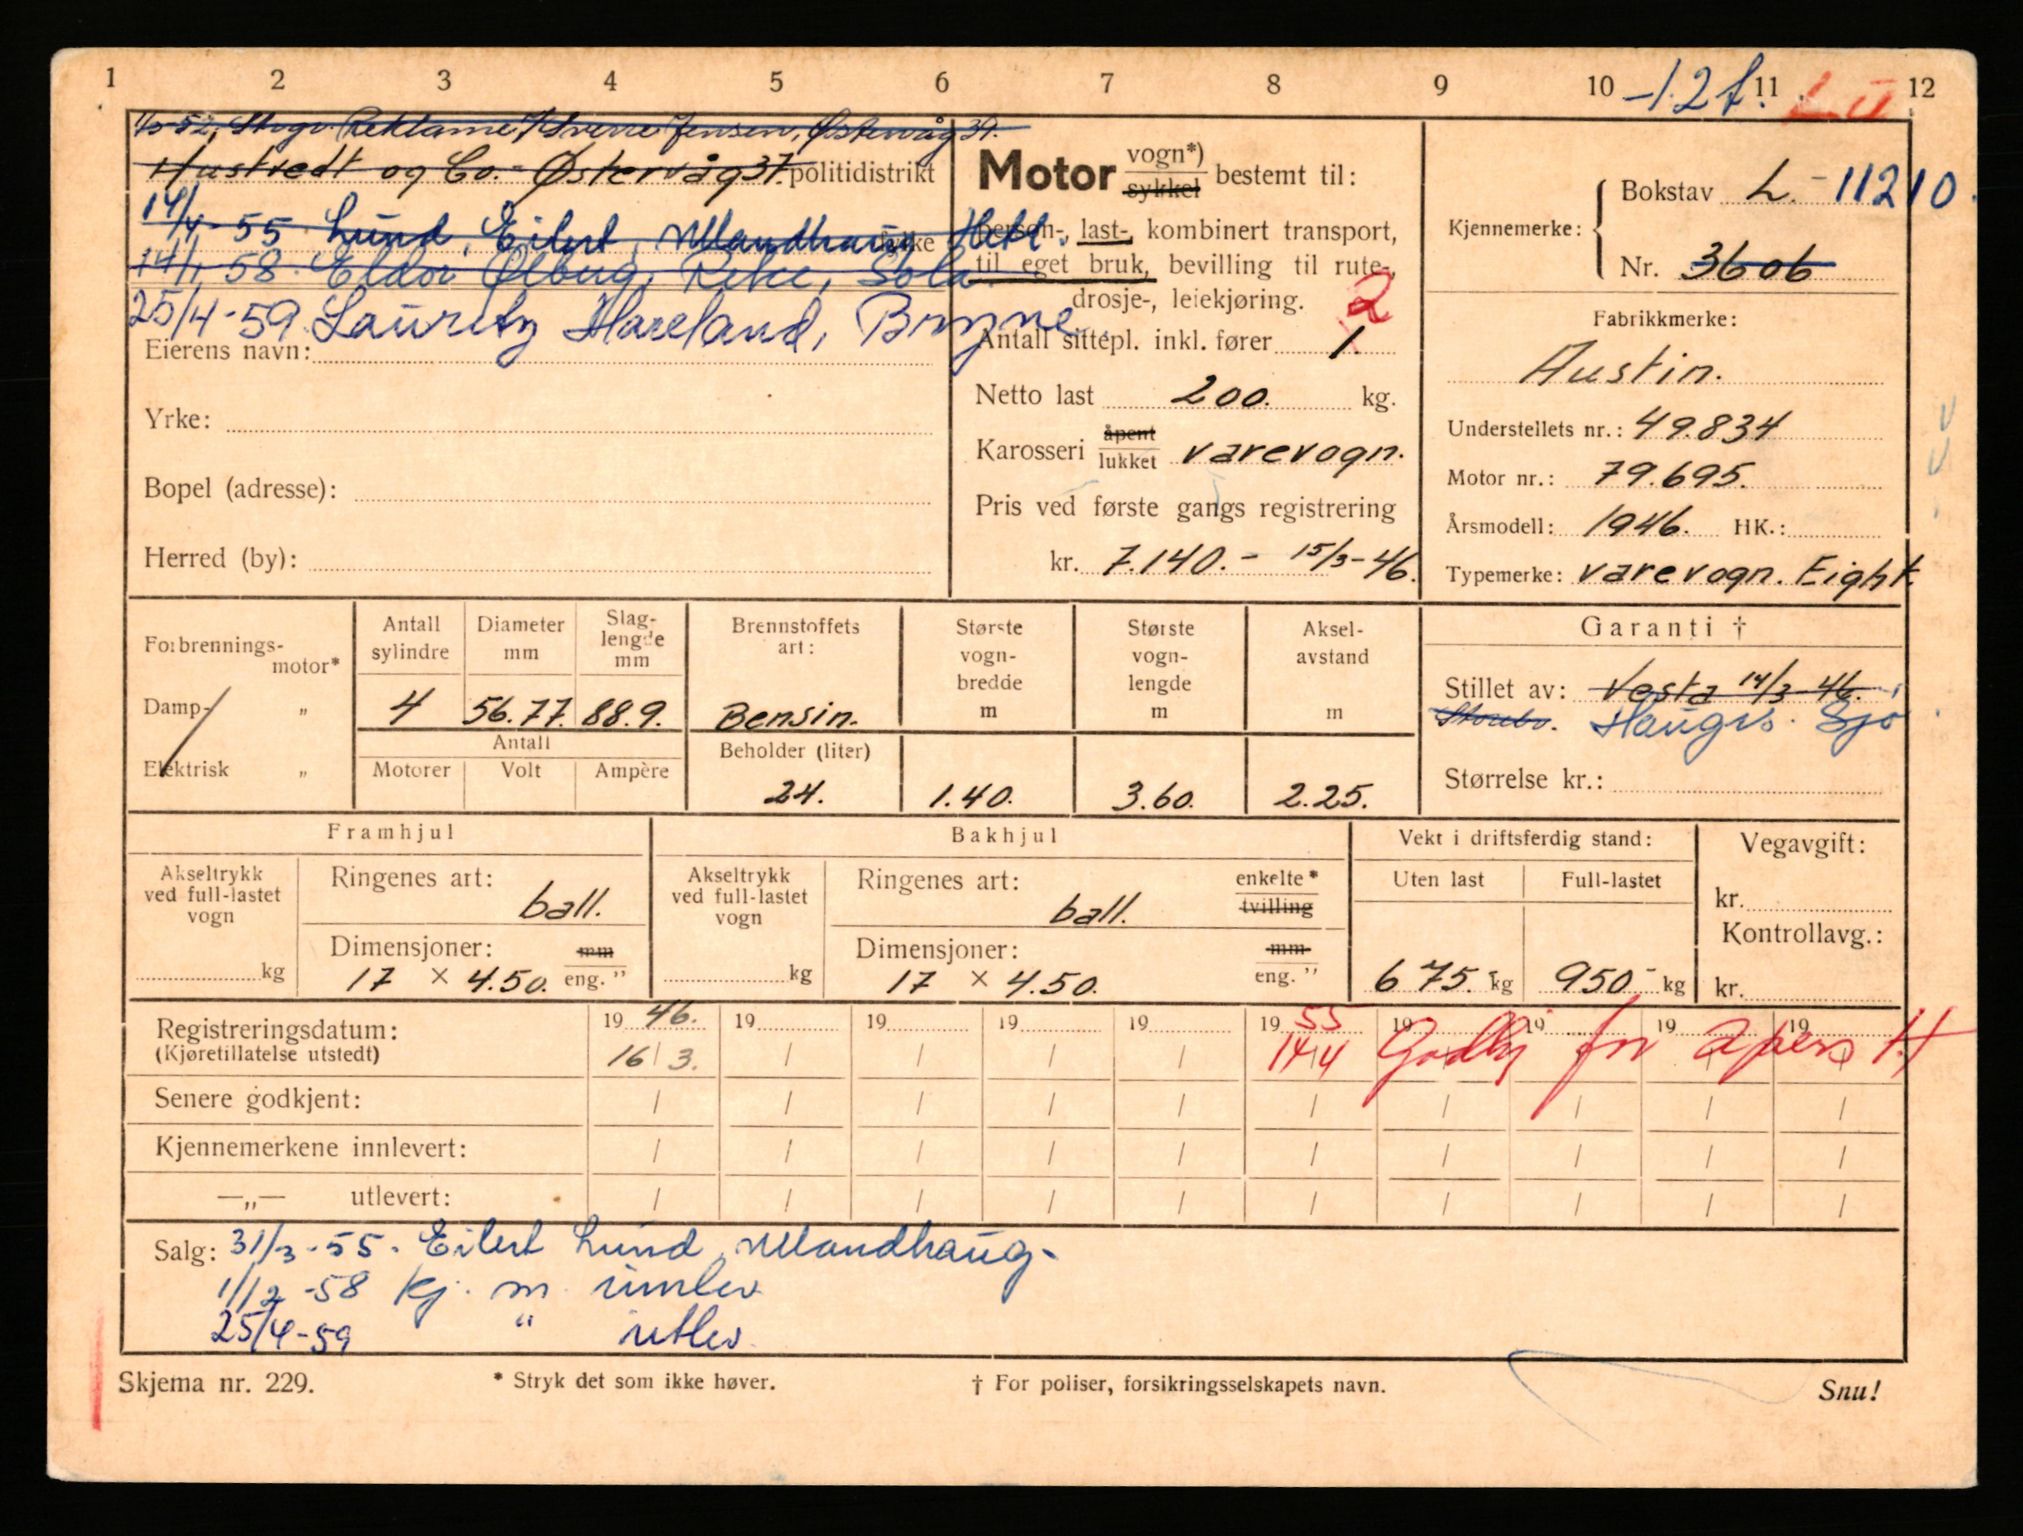 1 2 3 4 5 6 7 8 9 10 11 12
-12 f.
Reklame v/ Sverre Jensen, Østervåg 39.
Hustvedt og Co. - Østervåg 37. politidistrikt
14/4-55 Lund, Eilert, Mandhaug Hetl.
14/1-58. Eldor Ølberg, Reke, Sola
25/4-59 Lauritz Hareland, Bryne
Eierens navn:
Yrke:
Bopel (adresse):
Herred (by):
Motor vogn*) sykkel bestemt til:
person-, last-, kombinert transport,
til eget bruk, bevilling til rute-,
drosje-, leiekjøring.
2
Antall sittepl. inkl. fører 1.
Netto last 200. kg.
Karosseri åpent lukket varevogn.
Pris ved første gangs registrering
kr. 7.140.- 15/3-46.
Kjennemerke: Bokstav L.-11210.
Nr. 3606
Fabrikkmerke:
Austin.
Understellets nr.: 49.834
Motor nr.: 79.695.
Årsmodell: 1946. HK.:
Typemerke: varevogn. Eight.
Forbrennings-motor*
Damp- „
Elektrisk „
Antall sylindre
4
Diameter mm
56.77.
Slaglengde mm
88.9.
Antall
Motorer Volt Ampère
Brennstoffets art:
Bensin.
Beholder (liter)
24.
Største vogn-bredde m
1.40.
Største vogn-lengde m
3.60.
Aksel-avstand m
2.25.
Garanti †
Stillet av: Vesta 14/3-46.
Storebr. Hauges. Sjø
Størrelse kr.:
Framhjul
Akseltrykk ved full-lastet vogn
kg
Ringenes art:
ball.
Dimensjoner: mm
17 × 4.50. eng. ”
Bakhjul
Akseltrykk ved full-lastet vogn
kg
Ringenes art: enkelte* tvilling
ball.
Dimensjoner: mm
17 × 4.50. eng. ”
Vekt i driftsferdig stand:
Uten last Full-lastet
675. kg 950 kg
Vegavgift:
kr.
Kontrollavg.:
kr.
Registreringsdatum: 19 46. 19 19 19 19 19 55 19 19 19 19
(Kjøretillatelse utstedt) 16/3. / / / / 14/4 Godkj for 2 pers H
Senere godkjent: / / / / / / / / / /
Kjennemerkene innlevert: / / / / / / / / / /
—„— utlevert: / / / / / / / / / /
Salg: 31/3-55. Eilert Lund, Mandhaug-
1/12-58 kj. m. innlev.
25/4-59 " utlev.
Skjema nr. 229.
* Stryk det som ikke høver.
† For poliser, forsikringsselskapets navn.
Snu!